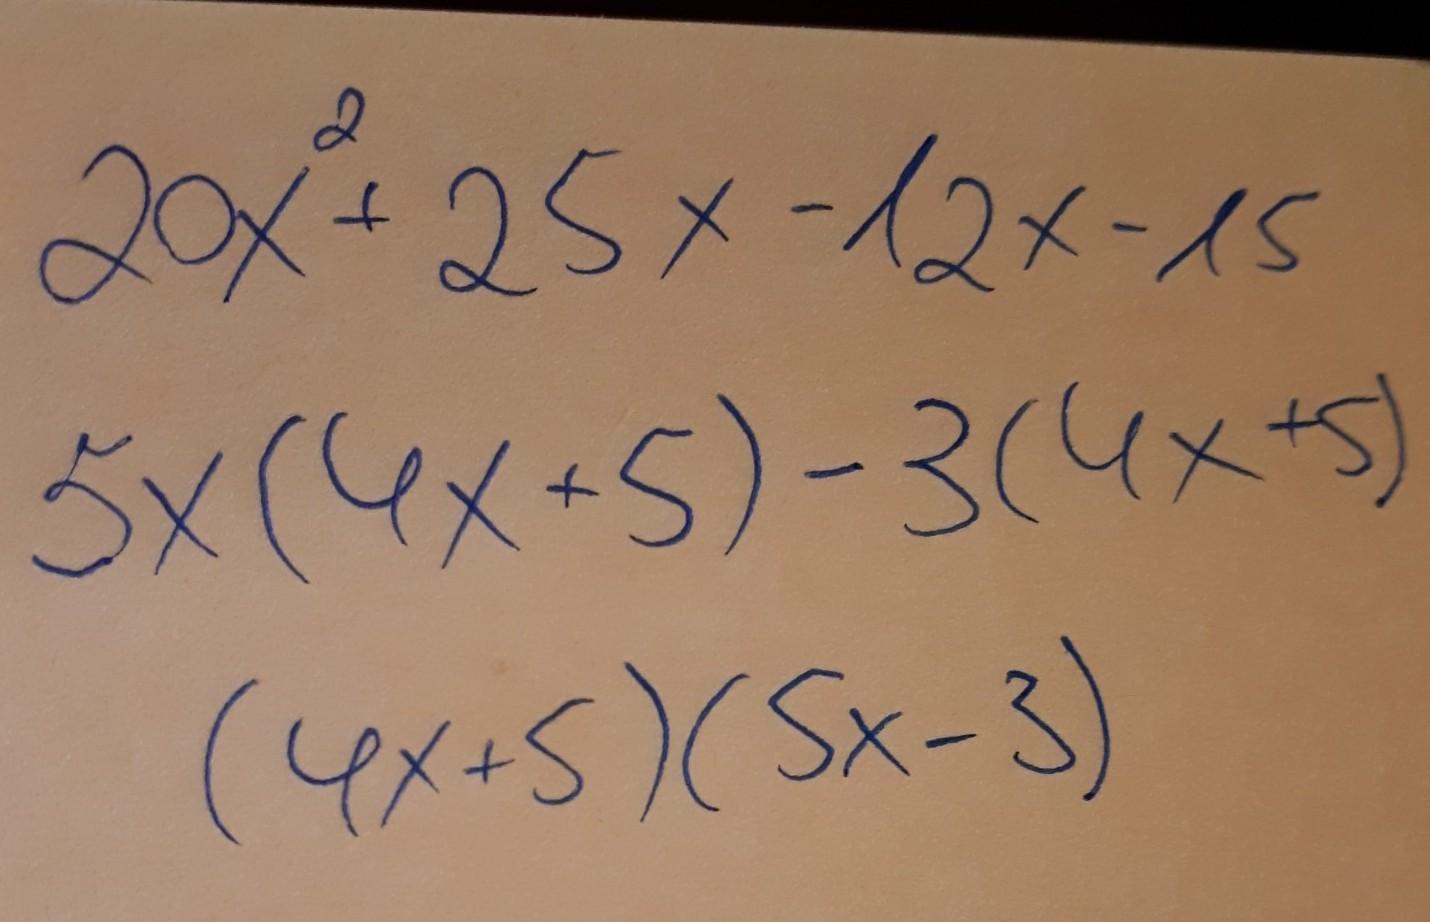 20x² + 25x - 12x - 15
5x(4x+5) - 3(4x+5)
(4x+5)(5x-3)